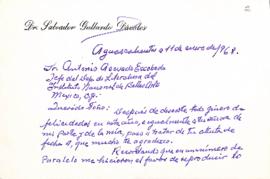 Dr. Salvador Gallardo Dávalos
Aguascalientes a 11 de enero de 1968.
Sr. Antonio Acevedo Escobedo
Jefe del Depto de Literatura del
Instituto Nacional de Bellas Artes
México, D.F.
Querido Toño: Después de desearte todo género de
felicidades en este año, igualmente a tu
de
mi parte y de la mía, paso a tratar de tu atenta de
fecha 9, que mucho te agradezco.
Recordando que en un número de
Paralelo me hicieron el favor de reproducir lo